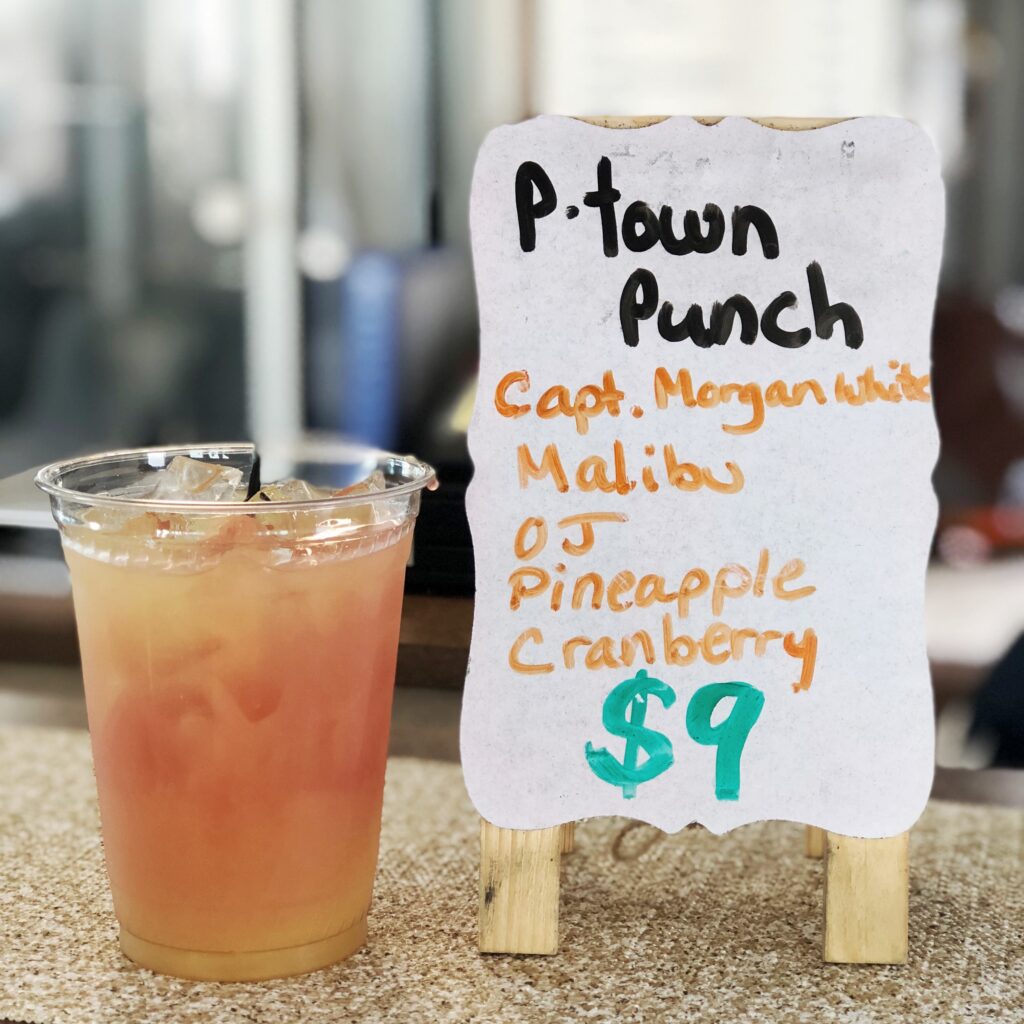 P.town
Punch
Capt. Morgan White
Malibu
OJ
Pineapple
Cranberry
$9